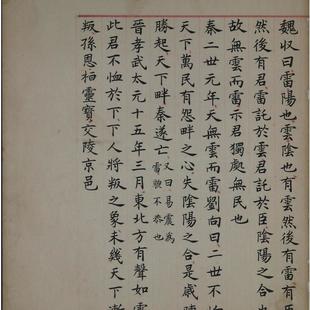 魏収曰雷陽也雲陰也有雲然後有雷有臣
然後有君雷託於雲君託於臣陰陽之合也
故無雲而雷示君獨處無民也
秦二世元年天無雲而雷劉向曰二世不恤
天下萬民有怨畔之心失陰陽之合是歳陳
勝起天下畔秦遂亡又曰易震為雷貌不恭也
晉孝武太元十五年三月東北方有聲如雷
此君不恤於下下人將叛之象未幾天下漸
叛孫恩栖靈寶交陵京邑